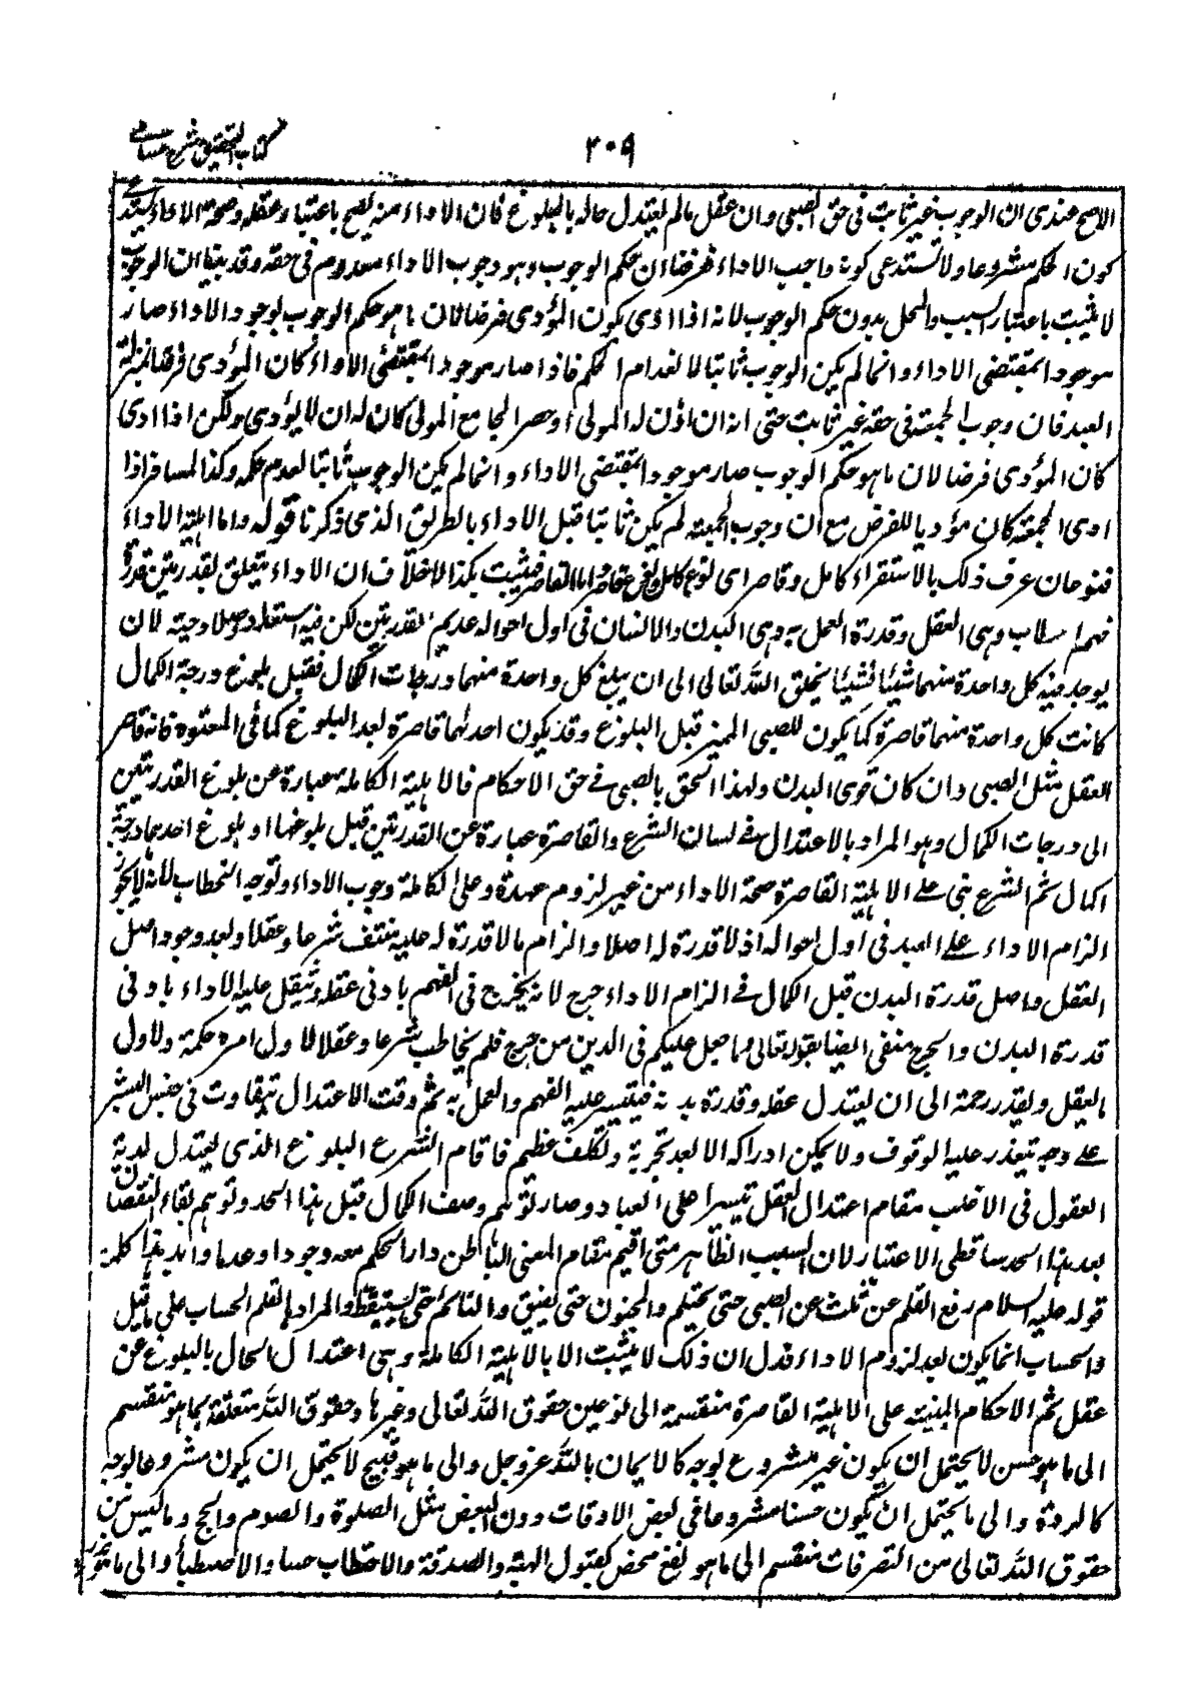 كتاب التحقيق شرح حسامي
٣٠٩
الاصح عندى ان الوجوب غير ثابت فى حق الصبى وان عقل ما لم يعتدل حاله بالبلوغ كان الاداء منه يصح باعتبار عقله وصحة الاداء يستدعى
كون الحكم مشروعا ولا تستدعى كونه واجب الاداء فعرفنا ان حكم الوجوب وهو وجوب الاداء معدوم فى حقه وقد بينا ان الوجوب
لا يثبت باعتبار السبب والمحل بدون حكم الوجوب لانه اذا ادى يكون المؤدى فرضا لان ما هو حكم الوجوب لوجود الاداء صار
موجودا بمقتضى الاداء وانما لم يكن الوجوب ثابتا لانعدام الحكم فاذا صار موجودا بمقتضى الاداء كان المؤدى فرضا بمنزلة
العبد فان وجوب الجمعة فى حقه غير ثابت حتى انه ان اذن له المولى او حضر الجامع المولى كان له ان لا يؤدى ولكن اذا ادى
كان المؤدى فرضا لان ما هو حكم الوجوب صار موجودا بمقتضى الاداء وانما لم يكن الوجوب ثابتا لعدم حكمه وكذا المسافر اذا
ادى الجمعة كان مؤديا للفرض مع ان وجوب الجمعة لم يكن ثابتا قبل الاداء بالطريق الذى ذكرنا قوله واما اهلية الاداء
فنوعان عرف ذلك بالاستقراء كامل وقاصر اى نوع كامل ونوع قاصر اما القاصر فيثبت بكذا لاخلاف ان الاداء يتعلق بقدرتين قدرة
فهم الخطاب وهى العقل وقدرة العمل به وهى البدن والانسان فى اول احواله عديم القدرتين لكن فيه استعداد وصلاحية لان
يوجد فيه كل واحدة منهما شيئا فشيئا بخلق الله تعالى الى ان يبلغ كل واحدة منهما درجات الكمال فقبل بلوغ درجة الكمال
كانت كل واحدة منهما قاصرة كما يكون للصبى المميز قبل البلوغ وقد يكون احدٰهما قاصرة بعد البلوغ كما فى المعتوه فانه قاصر
العقل مثل الصبى وان كان قوى البدن ولهذا الحق بالصبى فى حق الاحكام فالاهلية الكاملة عبارة عن بلوغ القدرتين
الى درجات الكمال وهو المراد بالاعتدال فى لسان الشرع والقاصرة عبارة عن القدرتين قبل بلوغهما او بلوغ احدٰهما درجة
الكمال ثم الشرع بنى على الاهلية القاصرة صحة الاداء من غير لزوم عهدة وعلى الكاملة وجوب الاداء وتوجه الخطاب لانه لا يجوز
الزام الاداء على العبد فى اول احواله اذ لا قدرة له اصلا والزام ما لا قدرة له عليه منتف شرعا وعقلا وبعد وجود اصل
العقل واصل قدرة البدن قبل الكمال فى الزام الاداء حرج لانه يحرج فى الفهم بادنى عقله ويثقل عليه الاداء بادنى
قدرة البدن والحرج منفى ايضا بقوله تعالى وما جعل عليكم فى الدين من حرج فلم يخاطب شرعا وعقلا لاول امره حكمة ولاول
ما يعقل ويقدر رحمة الى ان يعتدل عقله وقدرة بدنه فيتيسر عليه الفهم والعمل به ثم وقت الاعتدال يتفاوت فى جنس البشر
على وجه يتعذر عليه الوقوف ولا يمكن ادراكه الا بعد تجربة وتكلف عظيم فاقام الشرع البلوغ الذى يعتدل لديه
العقول فى الاغلب مقام اعتدال العقل تيسيرا على العباد وصار توهم وصف الكمال قبل هذا الحد وتوهم بقاء النقصان
بعد هذا الحد ساقطى الاعتبار لان السبب الظاهر متى اقيم مقام المعنى الباطن دار الحكم معه وجودا وعدما وايد هذا كله
قوله عليه السلام رفع القلم عن ثلث عن الصبى حتى يحتلم والمجنون حتى يفيق والنائم حتى يستيقظ والمراد بالقلم الحساب على ما قيل
والحساب انما يكون بعد لزوم الاداء فدل ان ذلك لا يثبت الا بالاهلية الكاملة وهى اعتدال الحال بالبلوغ عن
عقل ثم الاحكام المبنية على الاهلية القاصرة منقسمة الى نوعين حقوق الله تعالى وغيرها وحقوق الله متعلقة بما هو منقسم
الى ما هو حسن لا يحتمل ان يكون غير مشروع بوجه كالايمان بالله عز وجل والى ما هو قبيح لا يحتمل ان يكون مشروعا بوجه
كالردة والى ما يحتمل ان يكون حسنا مشروعا فى بعض الاوقات دون البعض مثل الصلوة والصوم والحج وما ليس من
حقوق الله تعالى من التصرفات منقسم الى ما هو نفع محض كقبول الهبة والصدقة والاحتطاب والاصطياد والى ما هو ضرر